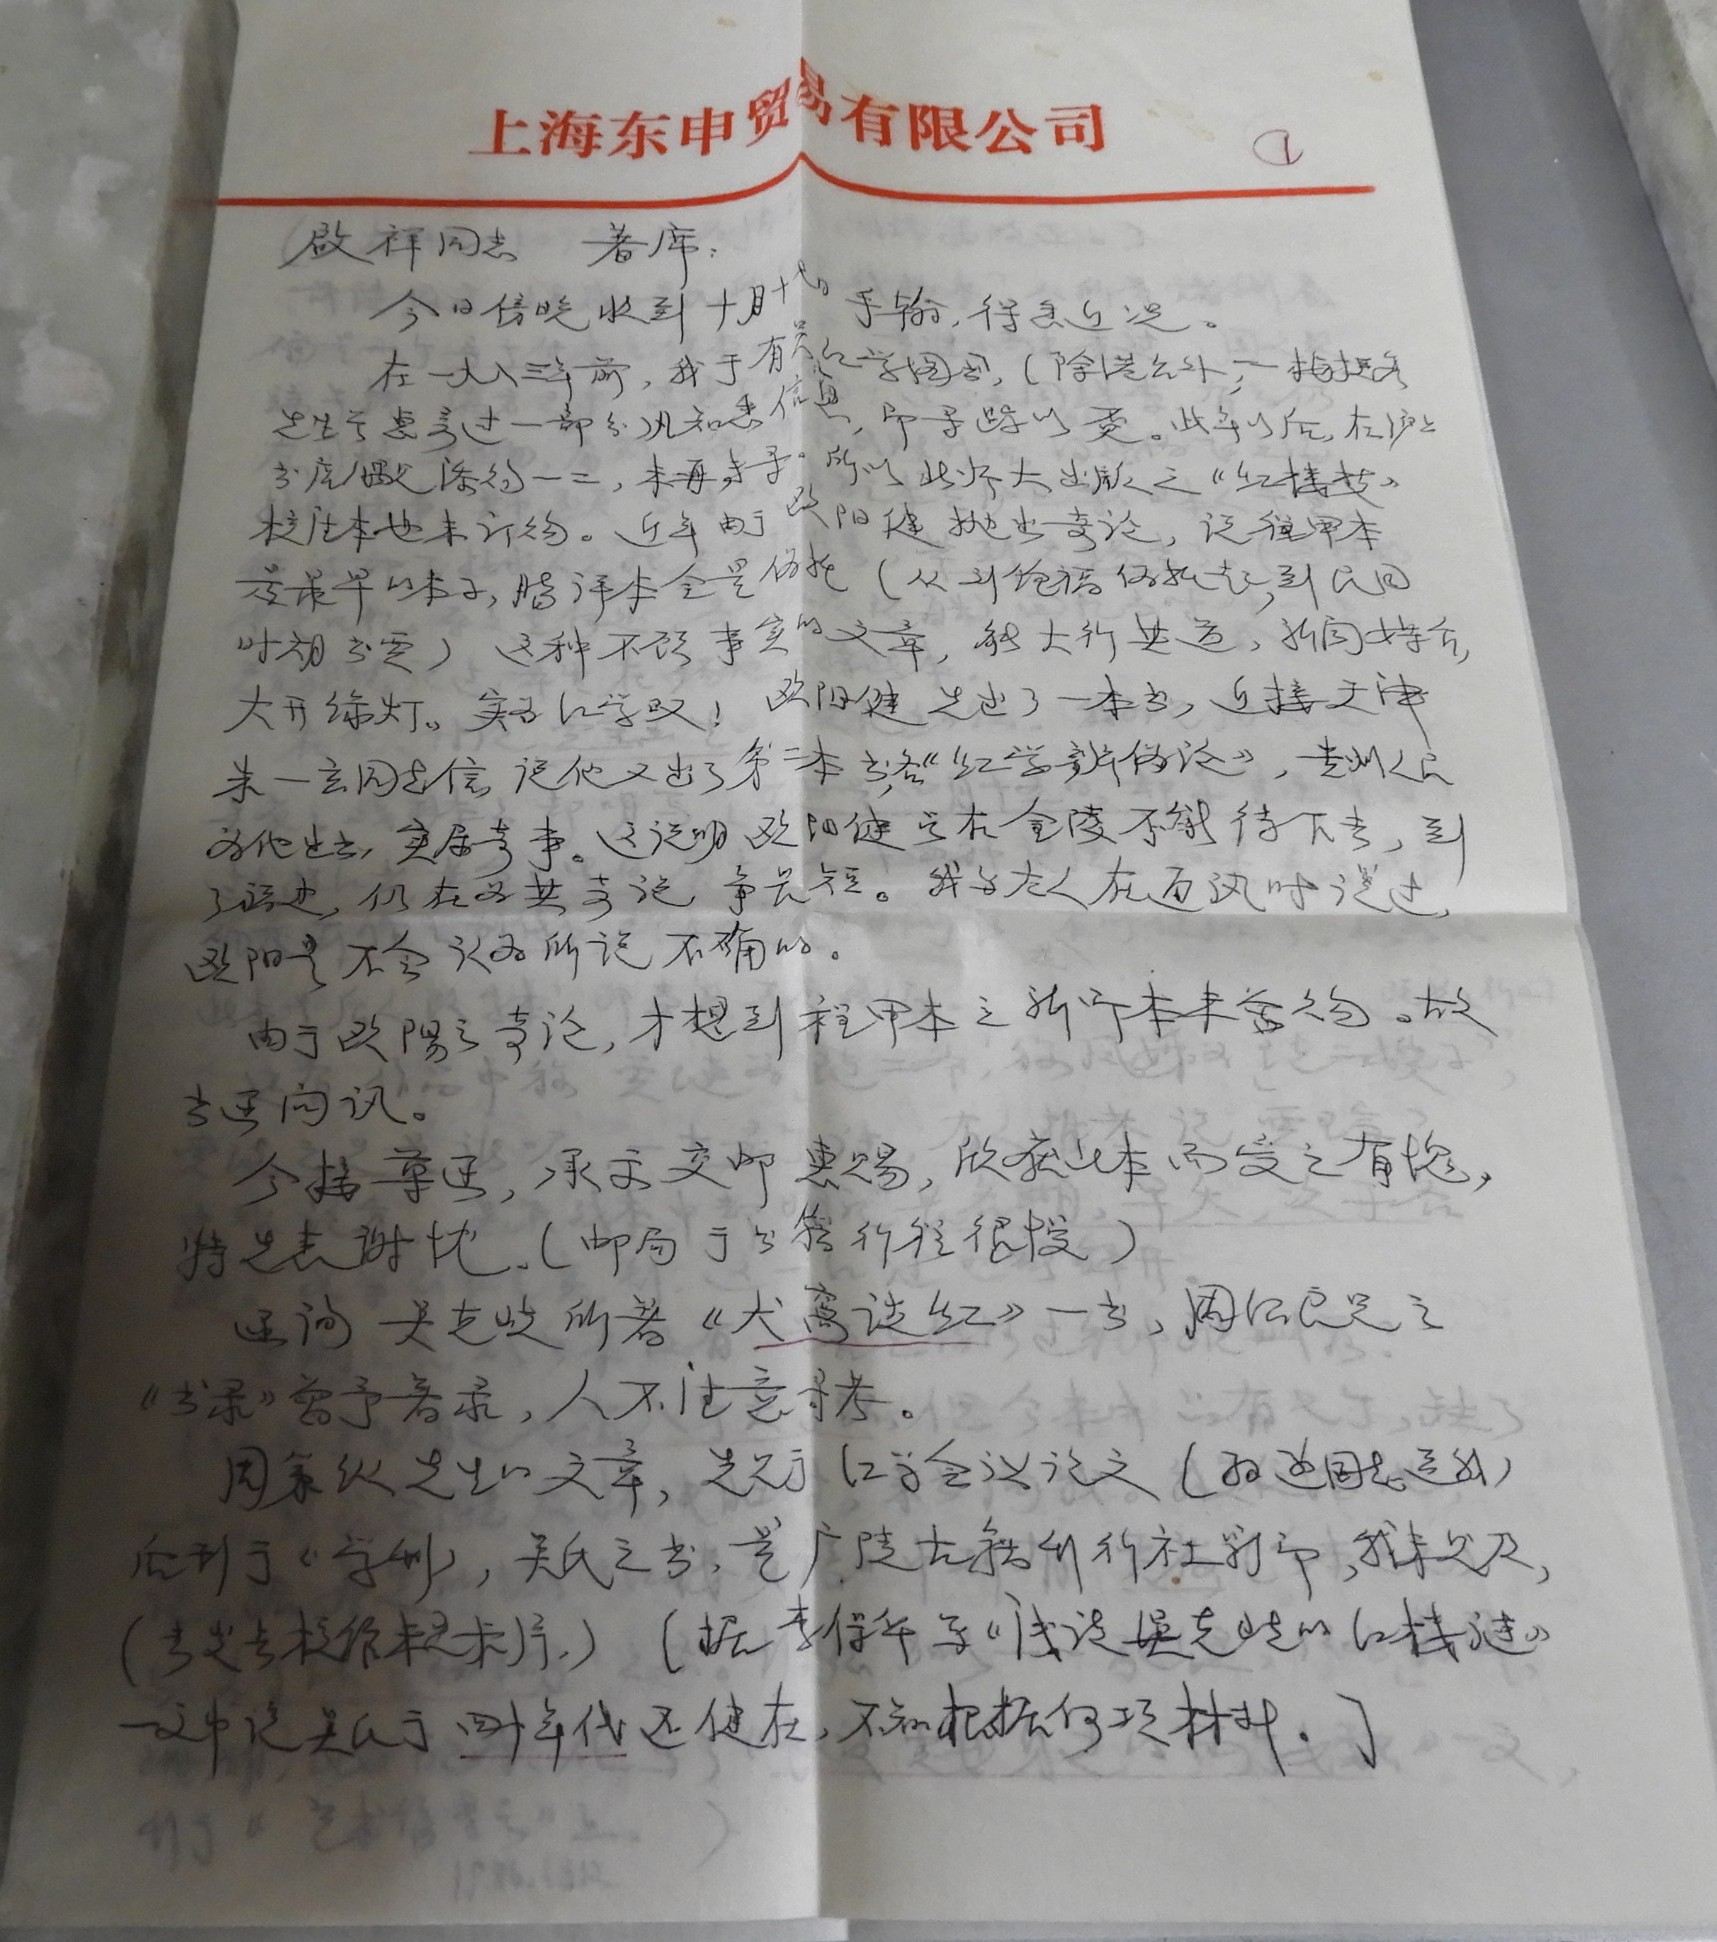 上海东申贸易有限公司
①
啟祥同志　著席：
今日傍晚收到十月十七日手翰，得悉近况。
在一九八三年前，我于有关红学图书，（除港台外，一梅挺秀
先生曾惠寄过一部分）凡知悉信息，即寻踪以觅。此年以后，在沪上
书店偶尔添得一二，未再寻。所以北师大出版之《红楼梦》
校注本也未訂得。近年由于欧阳健抛出奇论，说程甲本
是最早的本子，脂评本全是伪托（从刘铨福伪托起，到民国
时期出矣）这种不顾事实的文章，能大行其道，新闻媒介，
大开绿灯。实为红学叹！欧阳健先出了一本书，近接天津
朱一玄同志信，说他又出了第二本书名《红学辨伪论》，贵州人民
为他出书，实属奇事。这说明欧阳健已在金陵不能待下去，到
了福建，仍在为其奇说争长短。我与友人在面讯时说过，
欧阳是不会认为所说不确的。
由于欧陽之奇论，才想到程甲本之新印本未尝得。故
书函问讯。
今接华函，承示交邮惠赐，欣获此本而受之有愧，
特先表谢忱。（邮局于书籍行程很慢）
函询吴克岐所著《犬窝谈红》一书，周绍良兄之
《书录》曾予著录，人不注意寻考。
周策纵先生的文章，先见于红学会议论文（　同志送我）
后刊于《学刊》，吴氏之书，是广陵古籍刊行社影印，我未见及，
（　　　　　　）（据李保年写《浅谈吴克岐的红楼谜》
一文中说吴氏于四十年代还健在，不知根据何项材料。］